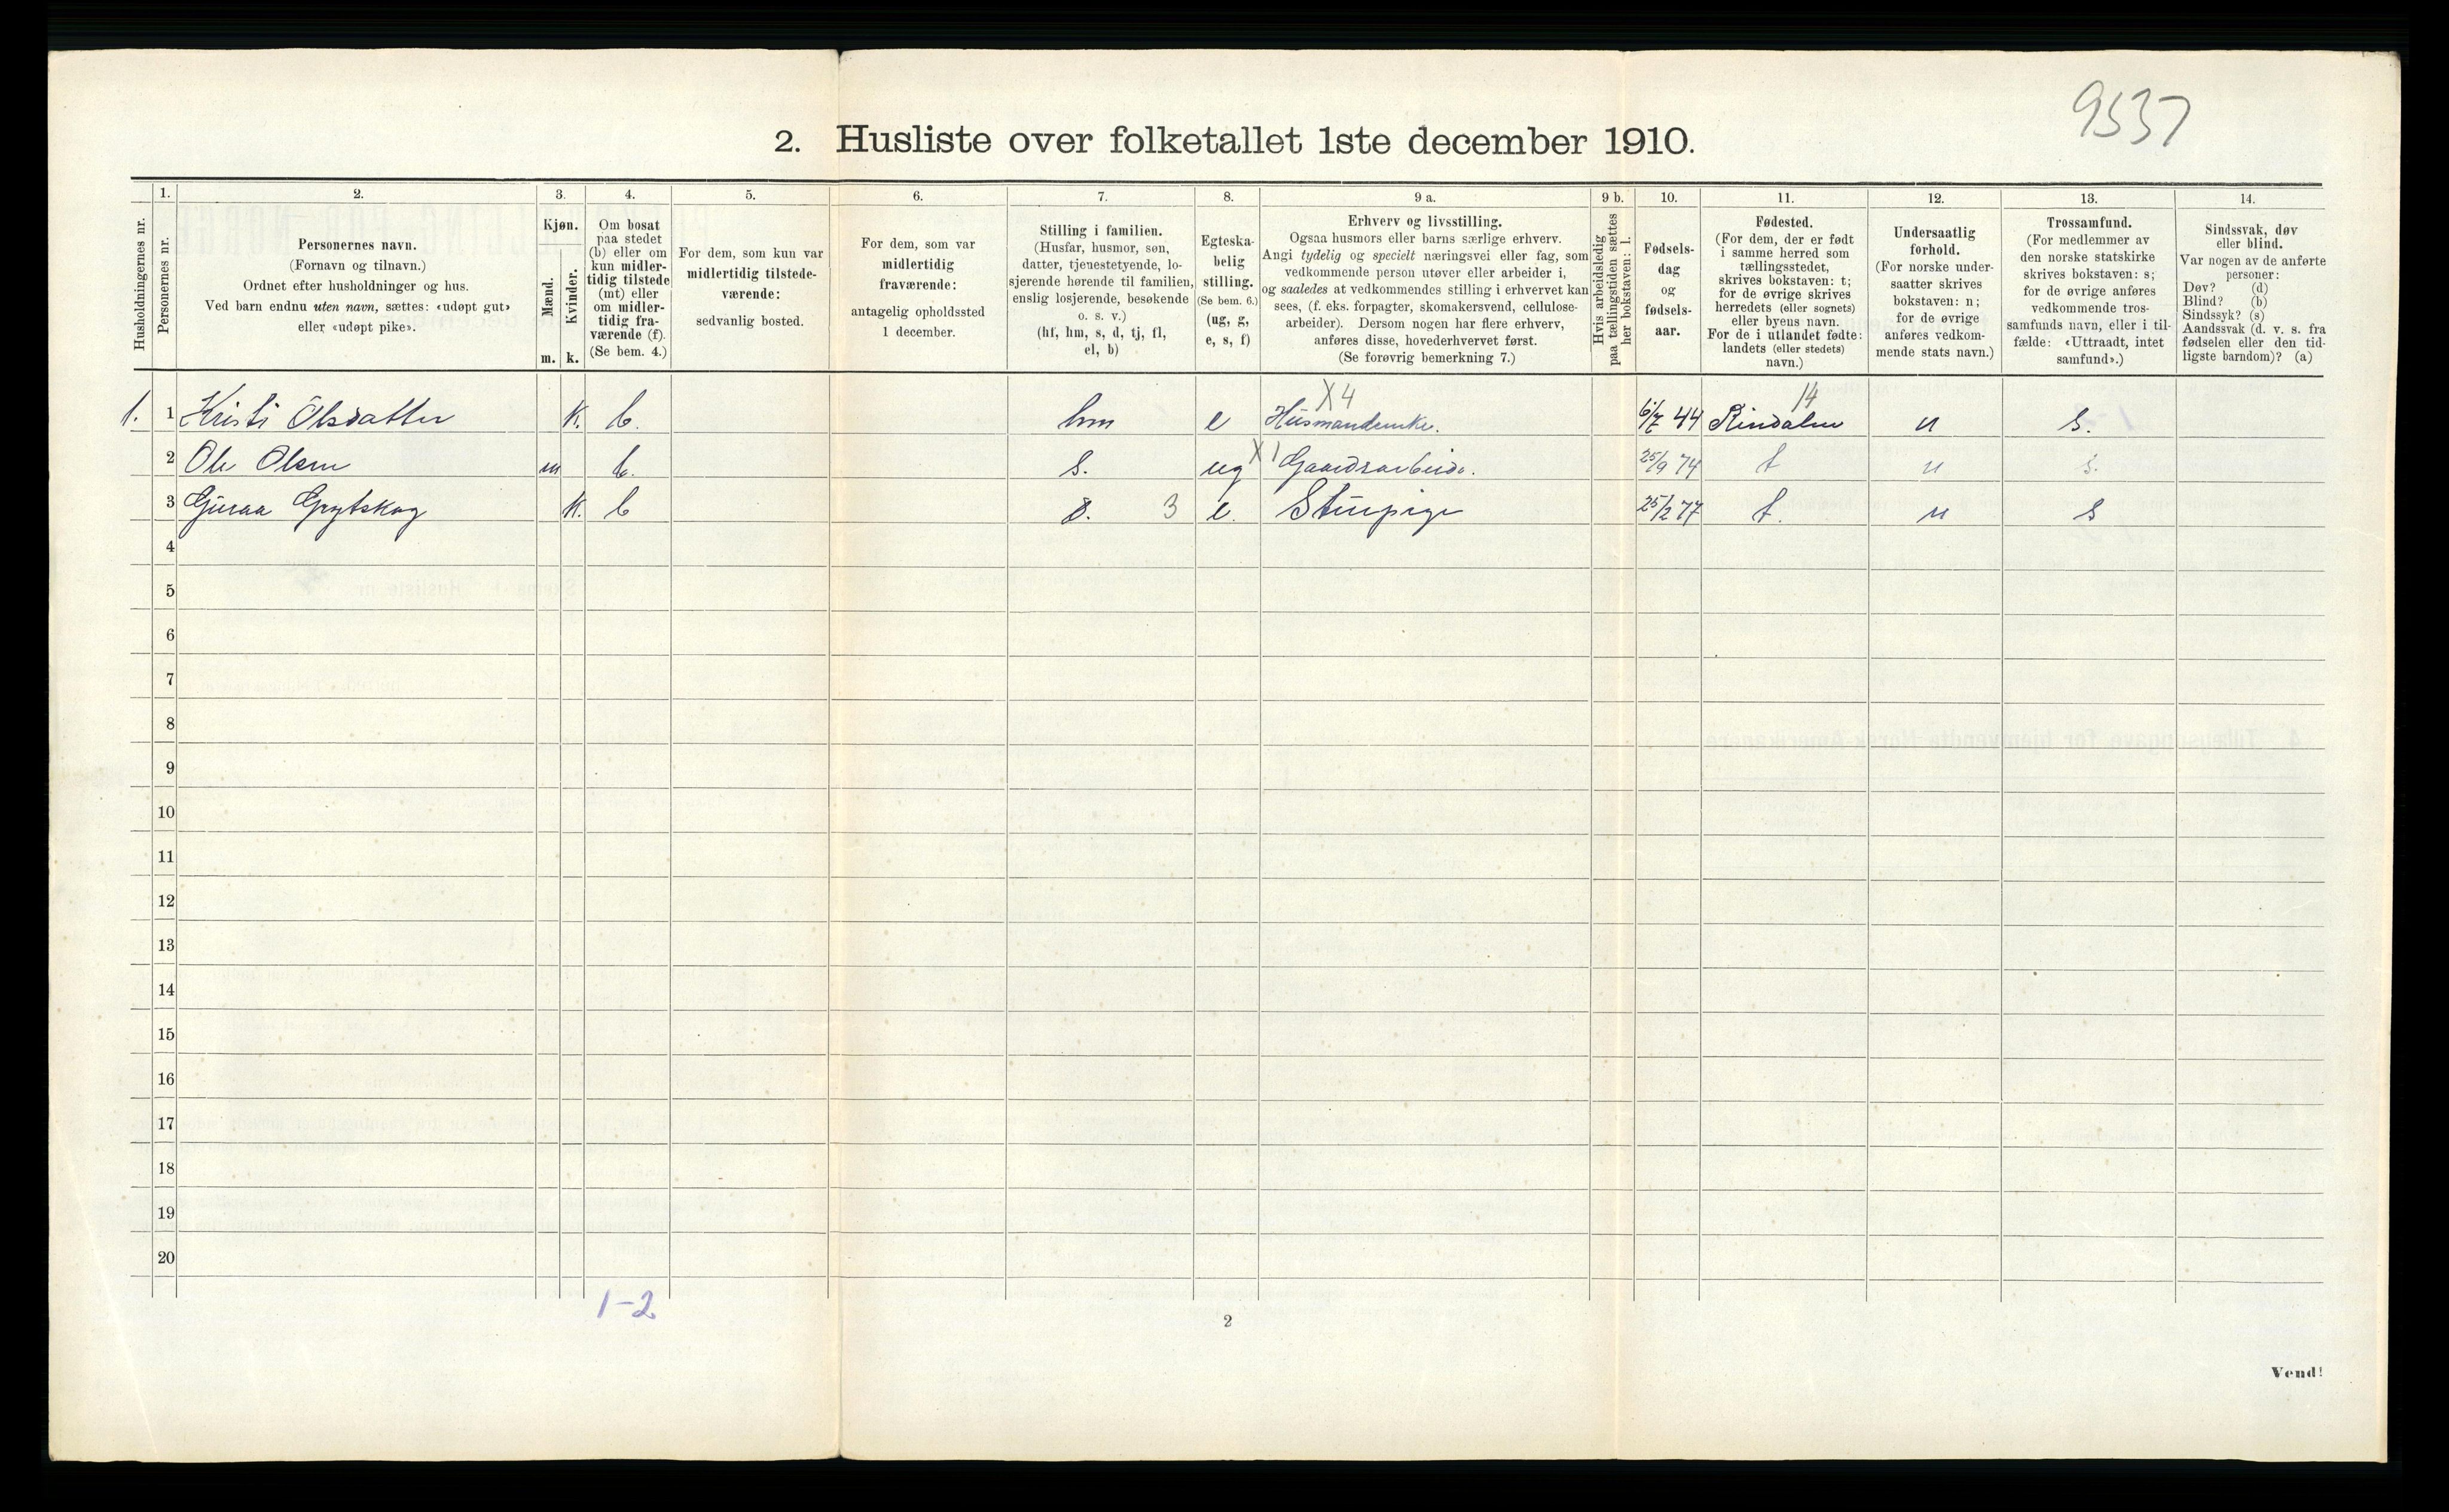 9537
2. Husliste over folketallet 1ste december 1910.
Husholdningernes nr.
1. Personernes nr.
2. Personernes navn.
(Fornavn og tilnavn.)
Ordnet efter husholdninger og hus.
Ved barn endnu uten navn, sættes: «udøpt gut»
eller «udøpt pike».
3. Kjøn.
Mænd. m.
Kvinder. k.
4. Om bosat
paa stedet
(b) eller om
kun midler-
tidig tilstede
(mt) eller
om midler-
tidig fra-
værende (f).
(Se bem. 4.)
5. For dem, som kun var
midlertidig tilstede-
værende:
sedvanlig bosted.
6. For dem, som var
midlertidig
fraværende:
antagelig opholdssted
1 december.
7. Stilling i familien.
(Husfar, husmor, søn,
datter, tjenestetyende, lo-
sjerende hørende til familien,
enslig losjerende, besøkende
o. s. v.)
(hf, hm, s, d, tj, fl,
el, b)
8. Egteska-
belig
stilling.
(Se bem. 6.)
(ug, g,
e, s, f)
9 a. Erhverv og livsstilling.
Ogsaa husmors eller barns særlige erhverv.
Angi tydelig og specielt næringsvei eller fag, som
vedkommende person utøver eller arbeider i,
og saaledes at vedkommendes stilling i erhvervet kan
sees, (f. eks. forpagter, skomakersvend, cellulose-
arbeider). Dersom nogen har flere erhverv,
anføres disse, hovederhvervet først.
(Se forøvrig bemerkning 7.)
9 b. Hvis arbeidsledig
paa tællingstiden sættes
her bokstaven: l.
10. Fødsels-
dag
og
fødsels-
aar.
11. Fødested.
(For dem, der er født
i samme herred som
tællingsstedet,
skrives bokstaven: t;
for de øvrige skrives
herredets (eller sognets)
eller byens navn.
For de i utlandet fødte:
landets (eller stedets)
navn.)
12. Undersaatlig
forhold.
(For norske under-
saatter skrives
bokstaven: n;
for de øvrige
anføres vedkom-
mende stats navn.)
13. Trossamfund.
(For medlemmer av
den norske statskirke
skrives bokstaven: s;
for de øvrige anføres
vedkommende tros-
samfunds navn, eller i til-
fælde: «Uttraadt, intet
samfund».)
14. Sindssvak, døv
eller blind.
Var nogen av de anførte
personer:
Døv? (d)
Blind? (b)
Sindssyk? (s)
Aandssvak (d. v. s. fra
fødselen eller den tid-
ligste barndom)? (a)
X4 14
1. 1 Kristi Olsdatter k. b. hm e Husmandsenke. 6/7 44 Rindalen n s.
2 Ole Olsen m b. s. ug X1 Gaardsarbeide. 25/9 74 t n s.
3 Guraa Grytskog k. b d. 3 e. Stuepige 25/2 77 t. n s
4
5
6
7
8
9
10
11
12
13
14
15
16
17
18
19
20
1-2
2
Vend!